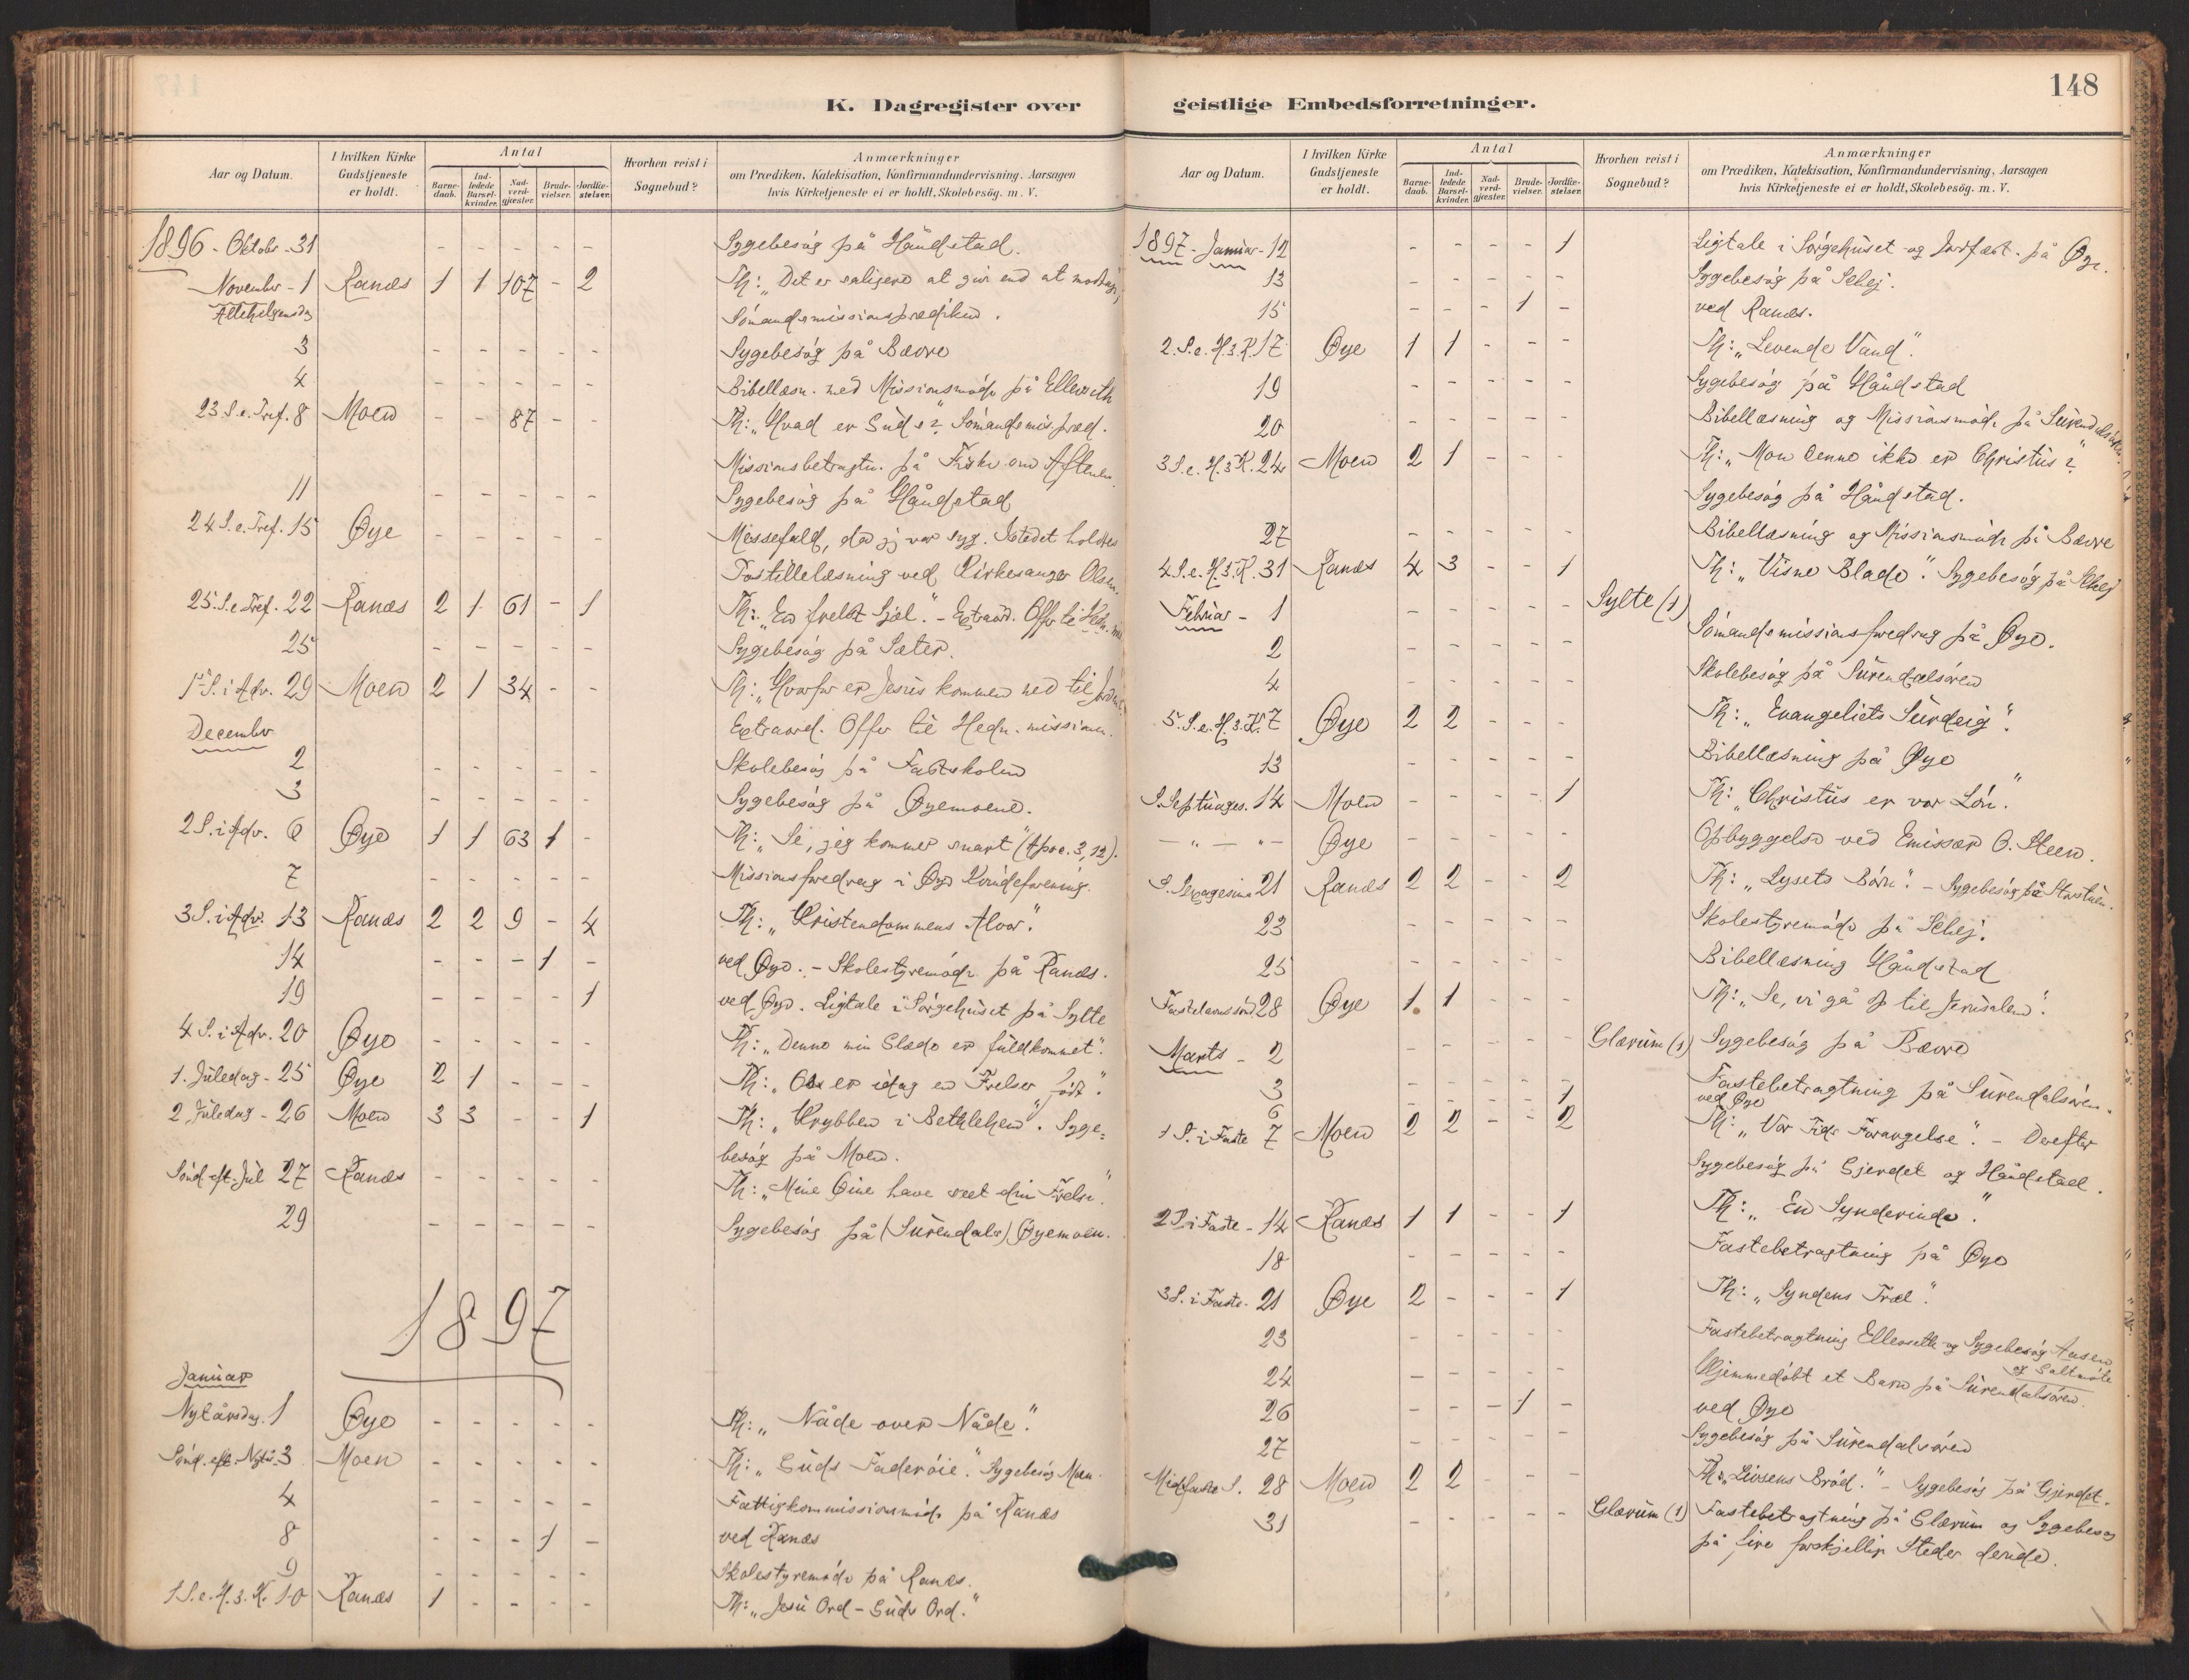 K. Dagregister over
Aar og Datum. I hvilken Kirke Gudstjeneste er holdt. Antal Barnedaab. Indledede Barselkvinder. Nadverdgjæster. Brudevielser. Jordfæstelser. Hvorhen reist i Sognebud? Anmærkninger om Prædiken, Katekisation, Konfirmandundervisning, Aarsagen hvis Kirketjeneste ei er holdt, Skolebesög. m. V.
1896 - Oktobr - 31 - - - - - Sygebesög på Håndstad.
November - 1 Ranæs 1 1 107 - 2 Th: „Det er saligere at give end at modtage"
Allehelgensdag Sömandsmissionsprædiken.
3 - - - - - Sygebesög på Bævre
4 - - - - - Bibellæsn. med Missionsmöde på Ellevseth
23 S. e. Tref. 8 Moen - - 87 - - Th: „Hvad er Guds?" Sömandsmis. præd.
Missionsbetragtn. på Fiske om Aftenen.
11 - - - - - Sygebesög på Håndstad
24 S. e. Tref. 15 Øye - - - - - Messefald, da jeg var syg. Istedet holdtes
Postillelæsning ved Kirkesanger Olsen.
25. S. e. Tref. 22 Ranæs 2 1 61 - 1 Th: „En frelst Sjæl." - Extraord. Offer til Hedn. mis
25 - - - - - Sygebesög på Sæter.
1ste S. i Adv. 29 Moen 2 1 34 - - Th: „Hvorfor er Jesus kommen ned til Jorden"
Extraord. Offer til Hedn. missionen.
December
2 - - - - - Skolebesög på Fastskolen
3 - - - - - Sygebesög på Øyemoene.
2 S. i Adv. 6 Øye 1 1 63 1 - Th: „Se, jeg kommer snart" (Apoc. 3,12).
7 - - - - - Missionsforedrag i Øye Kvindeforening.
3 S. i Adv. 13 Ranæs 2 2 9 - 4 Th: „Kristendommens Alvor."
14 - - - 1 - ved Øye. - Skolestyremöde på Ranæs.
19 - - - - 1 ved Øye. Ligtale i Sörgehuset på Sylte
4 S. i Adv. 20 Øye - - - - - Th: „Denne min Glæde er fuldkommet."
1. Juledag - 25 Øye 2 1 - - - Th: „Os er idag en Frelser födt."
2 Juledag - 26 Moen 3 3 - - 1 Th: „Krybben i Bethlehem". Syge-
besög på Moen.
Sönd. eft. Jul 27 Ranæs - - - - - Th: „Mine Öine have seet din Frelse".
29 - - - - - Sygebesög på (Surendals) Øyemoen.
1897
Januar
Nytårsdag. 1 Øye - - - - - Th: „Nåde over Nåde".
Sönd. eft. Nytår. 3 Moen - - - - - Th: „Guds Faderöie." Sygebesög Moen.
4 - - - - - Fattigkommissionsmöde på Ranæs
8 - - - 1 - ved Ranæs
9 - - - - - Skolestyremöde på Ranæs.
1 S. e. H. 3. K. 10 Ranæs 1 - - - - Th: „Jesu Ord - Guds Ord."
148
geistlige Embedsforretninger.
Aar og Datum. I hvilken Kirke Gudstjeneste er holdt. Antal Barnedaab. Indledede Barselkvinder. Nadverdgjæster. Brudevielser. Jordfæstelser. Hvorhen reist i Sognebud? Anmærkninger om Prædiken, Katekisation, Konfirmandundervisning, Aarsagen hvis Kirketjeneste ei er holdt, Skolebesög. m. V.
1897 - Januar - 12 - - - - 1 Ligtale i Sörgehuset og Jordfæst. på Øye.
13 - - - - - Sygebesög på Schej.
15 - - - 1 - ved Ranæs.
2. S. e. H. 3. K. 17 Øye 1 1 - - - Th: „Levende Vand".
19 - - - - - Sygebesög på Håndstad
20 - - - - - Bibellæsning og Missionsmöde på Surendalsören.
3 S. e. H. 3 K. 24 Moen 2 1 - - - Th: „Mon denne ikke er Christus?"
Sygebesög på Håndstad.
27 - - - - - Bibellæsning og Missionsmöde på Bævre
4 S. e. H. 3. K. 31 Ranæs 4 3 - - 1 Th: „Visne Blade". Sygebesög på Schej
Februar - 1 - - - - - Sylte (1)
2 - - - - - Sömandsmissionsforedrag på Øye.
4 - - - - - Skolebesög på Surendalsören
5. S. e. H. 3. K. 7 Øye 2 2 - - - Th: „Evangeliets Surdeig".
13 - - - - - Bibellæsning på Øye
S. Septuages. 14 Moen - - - - 1 Th: „Christus er vor Lön."
- „ - „ - Øye - - - - - Opbyggelse ved Emissær O. Steen.
S. Sexagesima 21 Ranæs 2 2 - - 2 Th: „Lysets Börn". - Sygebesög på
23 - - - - - Skolestyremöde på Schej.
25 - - - - - Bibellæsning Håndstad
Fastelavnssönd. 28 Øye 1 1 - - - Th: „Se, vi gå op til Jerusalem".
Marts - 2 - - - - - Glærum (1) Sygebesög på Bævre
3 - - - - - Fastebetragtning på Surendalsören.
6 - - - - 1 ved Øye
1 S. i Faste 7 Moen 2 2 - - 2 Th: „Vor Tids Forargelse". - Derefter
Sygebesög på Gjerdet og Håndstad.
2 S. i Faste - 14 Ranæs 1 1 - - 1 Th: „En Synderinde".
18 - - - - - Fastebetragtning på Øye
3 S. i Faste - 21 Øye 2 - - - 1 Th: „Syndens Træl".
23 - - - - - Fastebetragtning Ellevseth og Sygebesög Aasen
og Saltmöle
24 - - - - - Hjemmedöbt et Barn på Surendalsören.
26 - - - 1 - ved Øye
27 - - - - - Sygebesög på Surendalsören
Midfaste S. 28 Moen 2 2 - - - Th: „Livsens Bröd." - Sygebesög på Gjerdet.
31 - - - - - Glærum (1) Fastebetragtning på Glærum og Sygebesög
på fire forskjellige Steder derude.